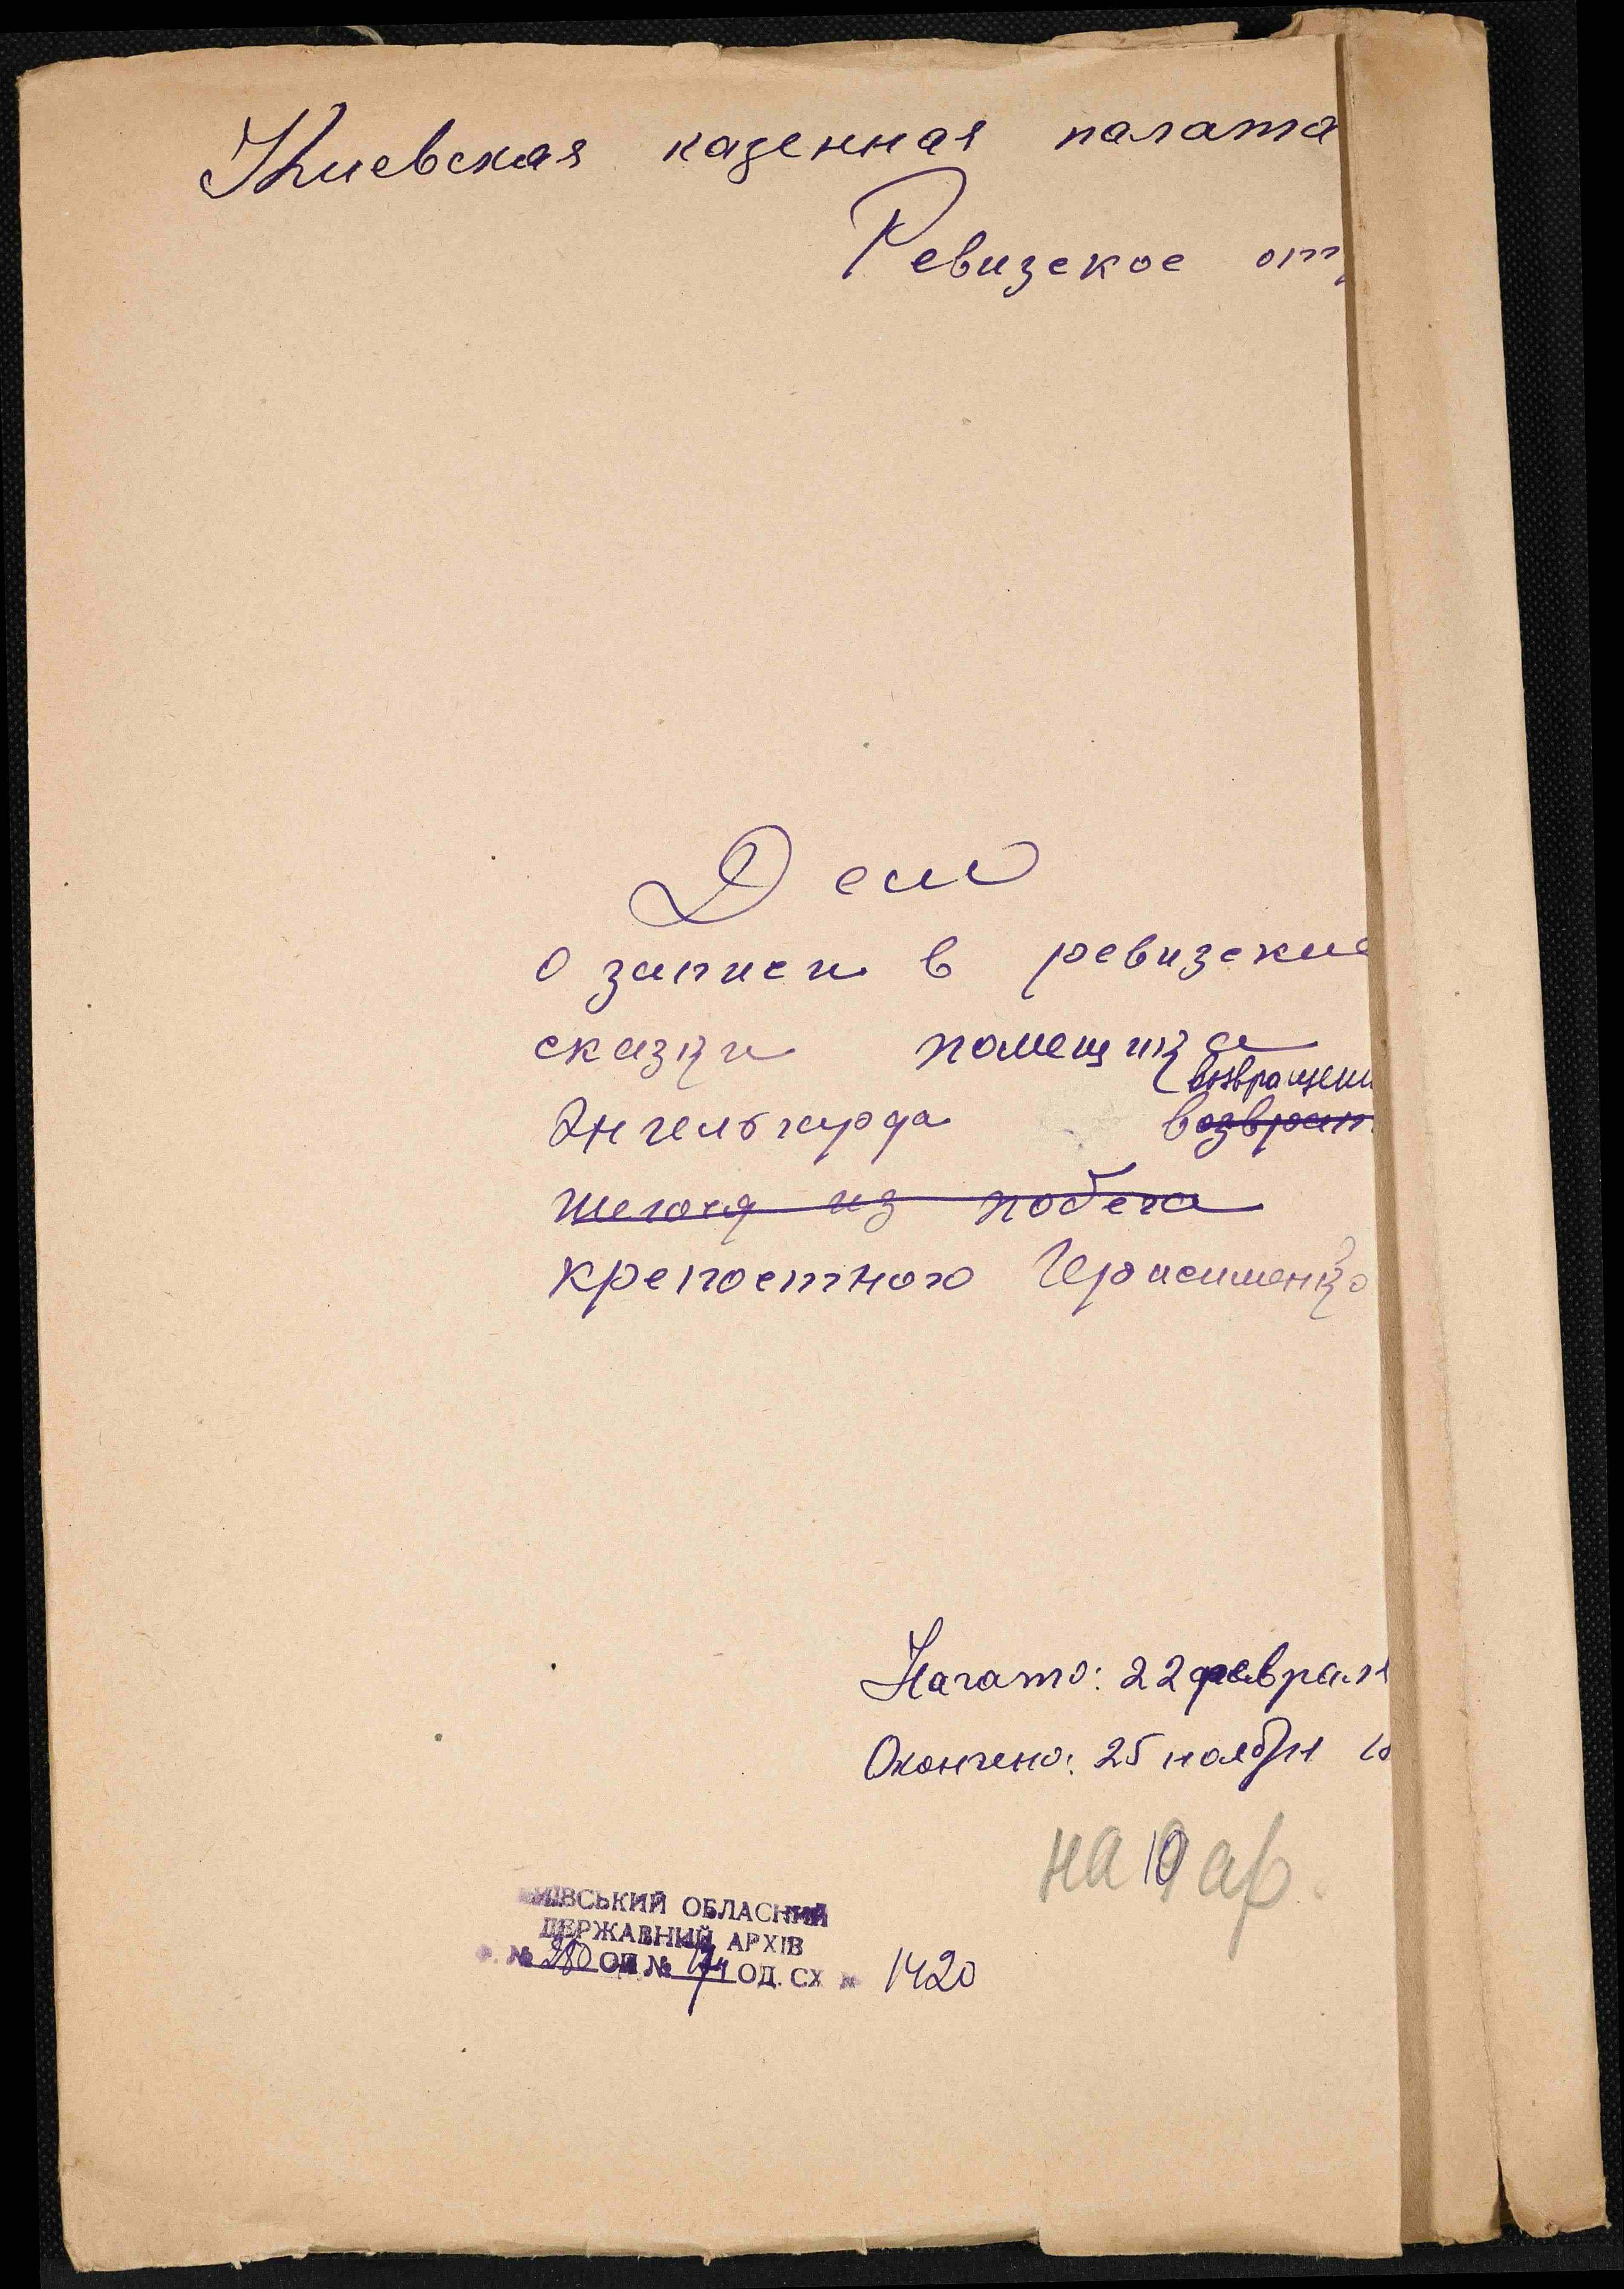 Киевская казенная палата
Ревизское от
Дело
о записи в ревизские
сказки помещика
возвращени
Энгельгарда возврат
шегося из побега
крепостного Герасименко
Начато: 22 февраля
Окончено: 25 ноября 18
на 10 ар.
КИЇВСЬКИЙ ОБЛАСНИЙ
ДЕРЖАВНИЙ АРХІВ
Ф. № 280 ОП № 174 ОД. СХ № 1420